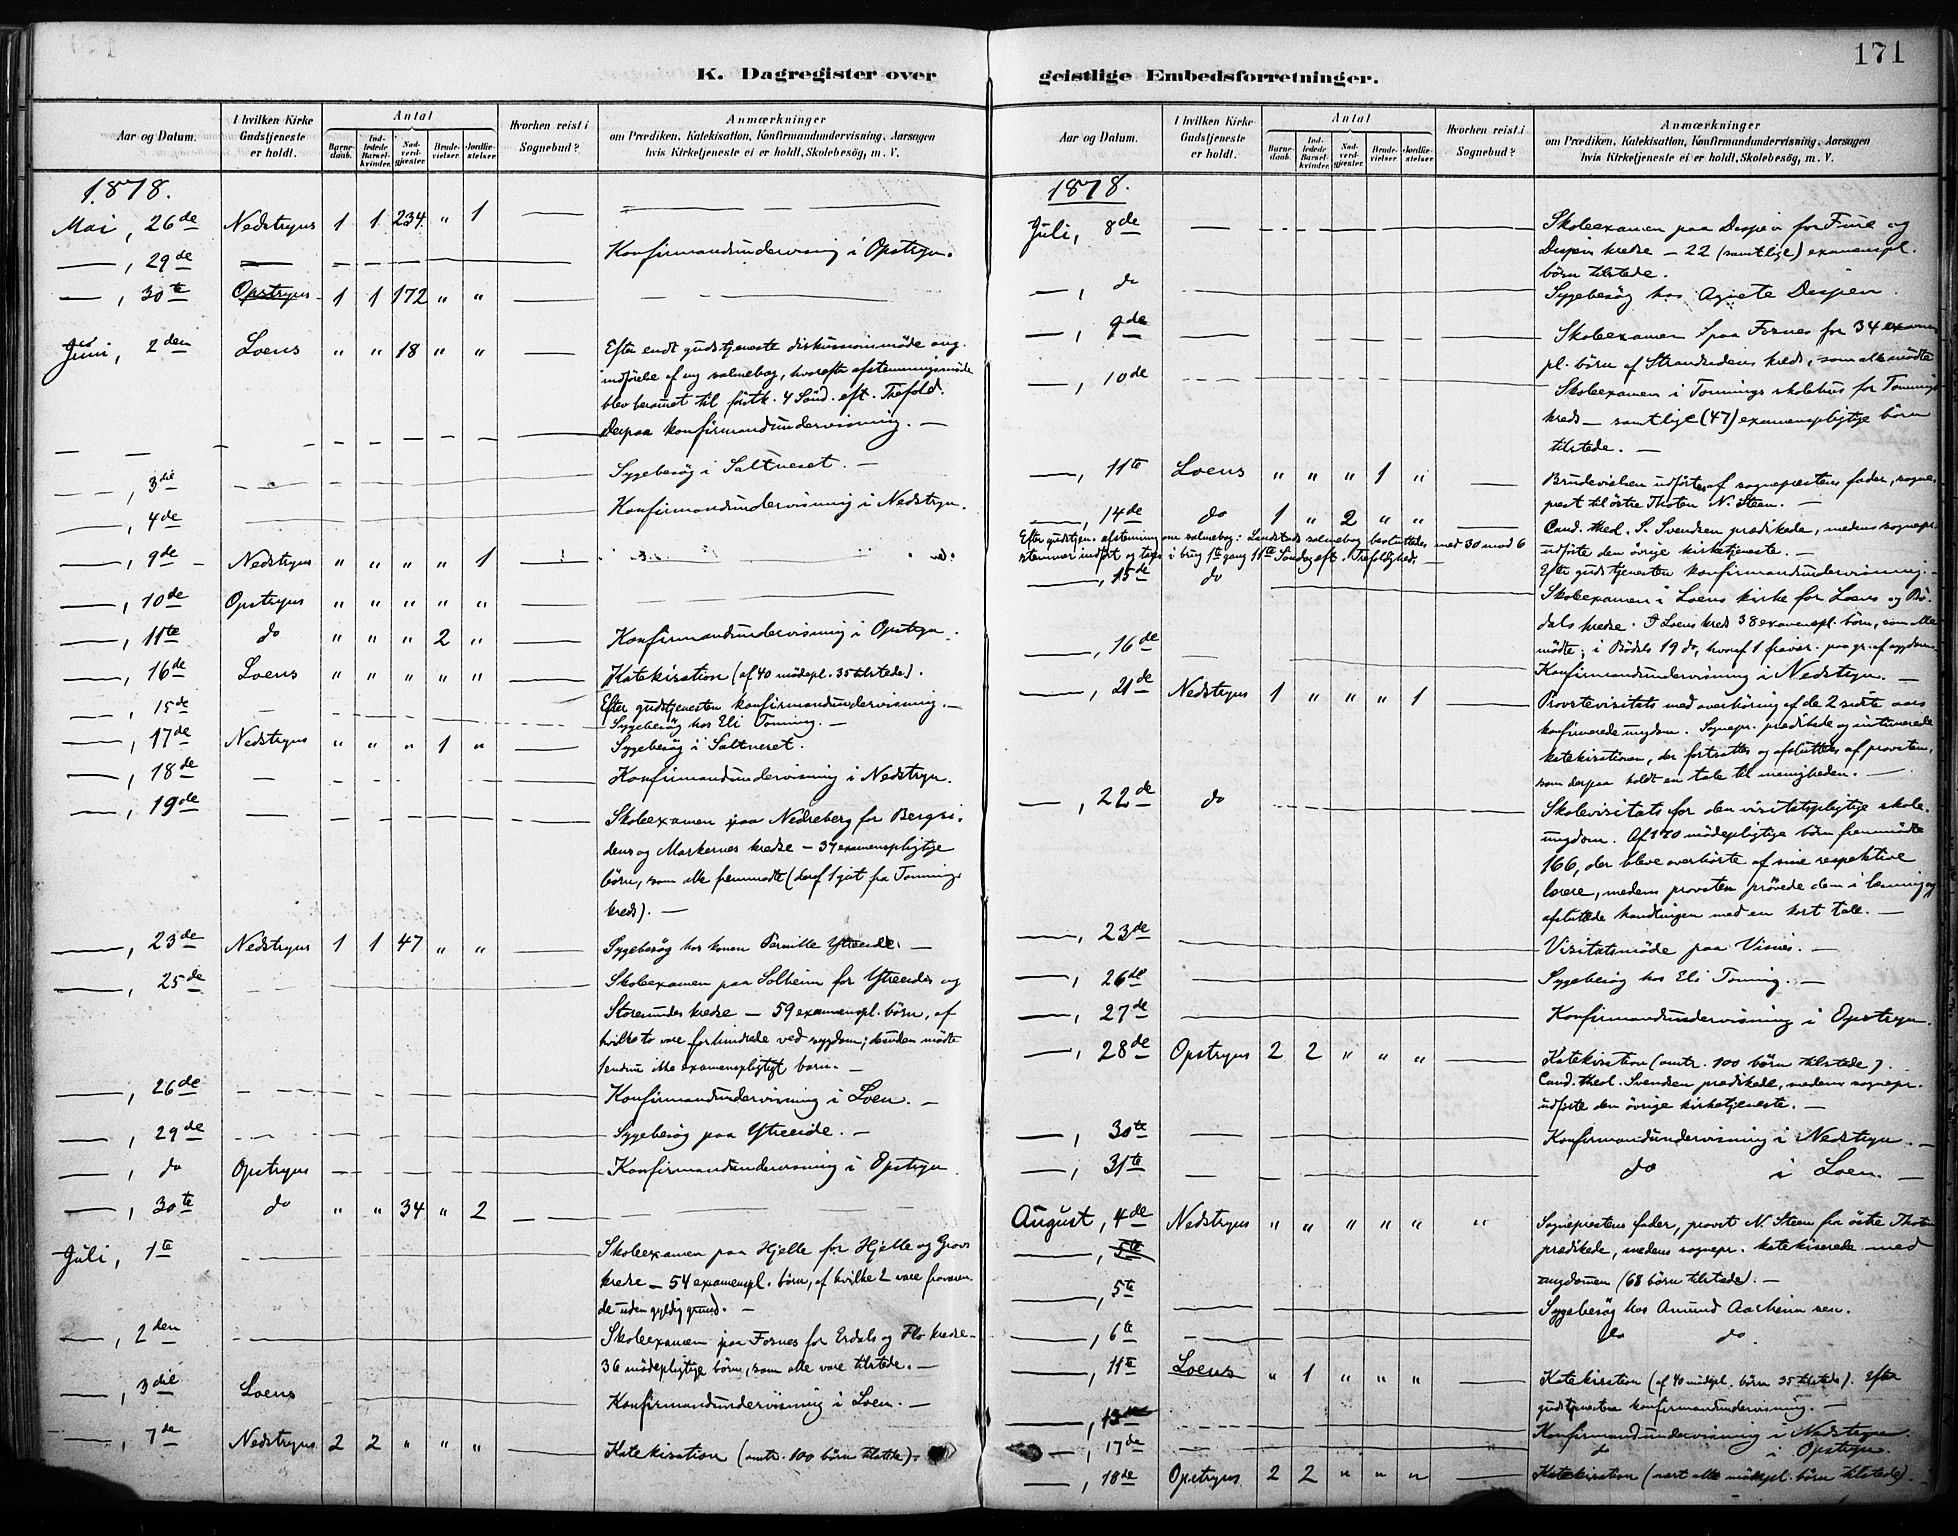 171
K. Dagregister over geistlige Embedsforretninger.
Aar og Datum.
I hvilken Kirke Gudstjeneste er holdt.
Antal
Barnedaab.
Indledede Barselkvinder.
Nadverdgjester.
Brudevielser.
Jordfæstelser.
Hvorhen reist i Sognebud?
Anmærkninger
om Prædiken, Katekisation, Konfirmandundervisning, Aarsagen
hvis Kirketjeneste ei er holdt, Skolebesøg, m. V.
1878.
Mai, 26de Nedstryns 1 1 234 " 1
—, 29de — Konfirmandundervisning i Opstryn.
—, 30te Opstryns 1 1 172 " "
Juni, 2den Loens " " 18 " " Efter endt gudstjeneste diskussionsmöde ang.
indförelse af ny salmebog, hvorefter afstemningsmöde
blev berammet til förstk. 4 Sönd. eft. Trefold.
Derpaa konfirmandundervisning. —
—, 3die Sygebesög i Saltneset. —
—, 4de Konfirmandundervisning i Nedstryn.
—, 9de Nedstryns " " " " 1
—, 10de Opstryns " " " " "
—, 11te do " " " 2 " Konfirmandundervisning i Opstryn.
—, 16de Loens " " " " " Katekisation (af 40 mödepl. 35 tilstede).
Efter gudstjenesten konfirmandundervisning. —
—, 15de — Sygebesög hos Eli Tonning. —
—, 17de Nedstryns " " " 1 " Sygebesög i Saltneset.
—, 18de — Konfirmandundervisning i Nedstryn.
—, 19de — Skoleexamen paa Nedreberg for Bergsi-
dens og Markernes kredse — 37 examenspligtige
börn, som alle fremmödte (deraf 1 git fra Tonning
kreds). —
—, 23de Nedstryns 1 1 47 " " Sygebesög hos konen Pernille Ytreeide. —
—, 25de Skoleexamen paa Solheim for Ytreeides og
Storesundes kredse — 59 examenspl. börn, af
hvilke to vare forhindrede ved sygdom; desuden mödte
endnu ikke examenspligtigt barn. —
—, 26de Konfirmandundervisning i Loen. —
—, 29de Sygebesög paa Ytreeide. —
—, do Opstryns Konfirmandundervisning i Opstryn
—, 30te do " " 34 " 2
Juli, 1te Skoleexamen paa Hjelle for Hjelle og Grovs
kredse — 54 examenspl. börn, af hvilke 2 vare fraværen-
de uden gyldig grund. —
—, 2den Skoleexamen paa Fosnes for Erdals og Flo kredse —
36 mödepligtige börn, som alle vare tilstede. —
—, 3die Loens Konfirmandundervisning i Loen. —
—, 7de Nedstryns 2 2 " " " Katekisation (omtr. 100 börn tilstede).
Aar og Datum.
I hvilken Kirke Gudstjeneste er holdt.
Antal
Barnedaab.
Indledede Barselkvinder.
Nadverdgjester.
Brudevielser.
Jordfæstelser.
Hvorhen reist i Sognebud?
Anmærkninger
om Prædiken, Katekisation, Konfirmandundervisning, Aarsagen
hvis Kirketjeneste ei er holdt, Skolebesøg, m. V.
1878.
Juli, 8de — Skoleexamen paa Dispen for Fure og
Dispen kredse — 22 (samtlige) examenspl.
börn tilstede.
—, do Sygebesög hos Agnete Dispen.
—, 9de — Skoleexamen paa Fosnes for 34 examens
pl. börn af Strandsidens kreds, som alle mödte
—, 10de Skoleexamen i Tonnings skolehus for Tonnings
kreds — samtlige (47) examenspligtige börn
tilstede. —
—, 11te Loens " " " 1 " Brudevielsen udförtes af sognepræstens fader, sogne-
præst til östre Thoten N. Steen. —
—, 14de do 1 " 2 " " Cand. theol. S. Svendsen prædikede, medens sognepr.
udförte den övrige kirketjeneste. —
Efter gudstjen. afstemning om salmebog: Landstads salmebog besluttedes med 30 mod 6
stemmer indfört og tages i brug 1te gang 11te Söndag eft. Trefoldighed. —
Efter gudstjenesten konfirmandundervisning. —
—, 15de do Skoleexamen i Loens kirke for Loens og Bö-
dals kredse. I Loens kreds 38 examenspl. börn, som alle
mödte; i Bödals 19 do, hvoraf 1 fravær. paa gr. af sygdom.
—, 16de Konfirmandundervisning i Nedstryn. —
—, 21de Nedstryns 1 " " " 1 Provstevisitats med overhöring af de 2 sidste aars
konfirmerede ungdom. Sognepr. prædikede og intimerede
katekisationen, der fortsattes og afsluttedes af provsten,
som derpaa holdt en tale til menigheden. —
—, 22de do Skolevisitats for den visitatspligtige skole-
ungdom. Af 170 mödepligtige börn fremmödte
166, der bleve overhörte af sine respektive
lærere, medens provsten prövede dem i læsning og
afsluttede handlingen med en kort tale. —
—, 23de Visitatsmöde paa Visnes. —
—, 26de Sygebesög hos Eli Tonning. —
—, 27de Konfirmandundervisning i Opstryn.
—, 28de Opstryns 2 2 " " " Katekisation (omtr. 100 börn tilstede).
Cand. theol. Svendsen prædikede, medens sognepr.
udförte den övrige kirketjeneste. —
—, 30te Konfirmandundervisning i Nedstryn. —
—, 31te do i Loen. —
August, 4de Nedstryns " " " " " " Sognepræstens fader, provst N. Steen fra östre Thoten
—, 5te prædikede, medens sognepr. katekiserede med
ungdommen (68 börn tilstede). —
5te Sygebesög hos Amund Aarheim sen.
—, 6te do do.
—, 11te Loens " 1 " " " Katekisation (af 40 mödepl. börn 35 tilstede). Efter
gudstjenesten konfirmandundervisning. —
—, 13de Konfirmandundervisning i Nedstryn.
—, 17de do i Opstryn.
—, 18de Opstryns 2 2 " " " Katekisation (næst alle mödepl. börn tilstede).